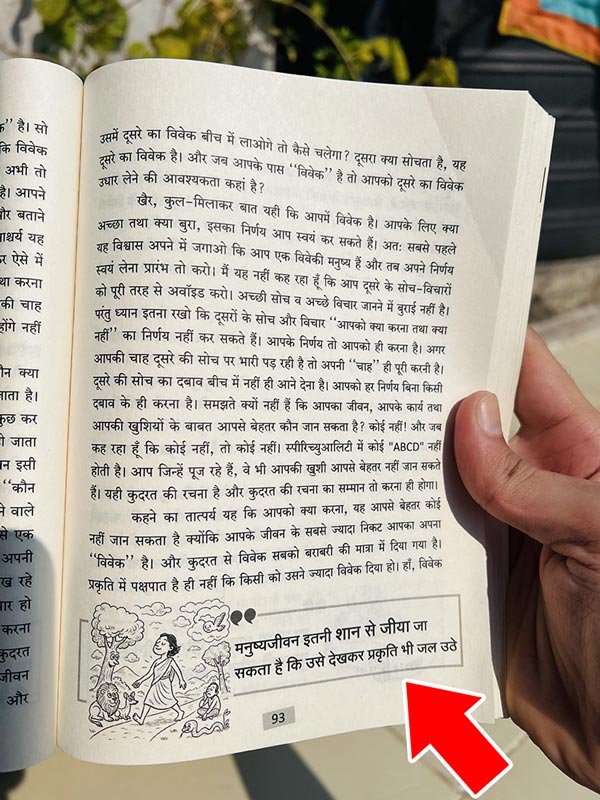 क” है। सो
कि विवेक
अभी तो
है। आपने
और बताने
आश्चर्य यह
कर ऐसे में
था करना
की चाह
होंगे नहीं
कौन क्या
जाता है।
कुछ कर
ही जाता
इसी
“कौन
ने वाले
से एक
अपनी
ख रहे
हो
करना
कुदरत
जीवन
और
उसमें दूसरे का विवेक बीच में लाओगे तो कैसे चलेगा? दूसरा क्या सोचता है, यह
दूसरे का विवेक है। और जब आपके पास “विवेक” है तो आपको दूसरे का विवेक
उधार लेने की आवश्यकता कहां है?
खैर, कुल-मिलाकर बात यही कि आपमें विवेक है। आपके लिए क्या
अच्छा तथा क्या बुरा, इसका निर्णय आप स्वयं कर सकते हैं। अत: सबसे पहले
यह विश्वास अपने में जगाओ कि आप एक विवेकी मनुष्य हैं और तब अपने निर्णय
स्वयं लेना प्रारंभ तो करो। मैं यह नहीं कह रहा हूँ कि आप दूसरे के सोच-विचारों
को पूरी तरह से अवॉइड करो। अच्छी सोच व अच्छे विचार जानने में बुराई नहीं है।
परंतु ध्यान इतना रखो कि दूसरों के सोच और विचार “आपको क्या करना तथा क्या
नहीं” का निर्णय नहीं कर सकते हैं। आपके निर्णय तो आपको ही करना है। अगर
आपकी चाह दूसरे की सोच पर भारी पड़ रही है तो अपनी “चाह” ही पूरी करनी है।
दूसरे की सोच का दबाव बीच में नहीं ही आने देना है। आपको हर निर्णय बिना किसी
दबाव के ही करना है। समझते क्यों नहीं हैं कि आपका जीवन, आपके कार्य तथा
आपकी खुशियों के बाबत आपसे बेहतर कौन जान सकता है? कोई नहीं! और जब
कह रहा हूँ कि कोई नहीं, तो कोई नहीं। स्पीरिच्युआलिटी में कोई "ABCD" नहीं
होती है। आप जिन्हें पूज रहे हैं, वे भी आपकी खुशी आपसे बेहतर नहीं जान सकते
हैं। यही कुदरत की रचना है और कुदरत की रचना का सम्मान तो करना ही होगा।
कहने का तात्पर्य यह कि आपको क्या करना, यह आपसे बेहतर कोई
नहीं जान सकता है क्योंकि आपके जीवन के सबसे ज्यादा निकट आपका अपना
“विवेक” है। और कुदरत से विवेक सबको बराबरी की मात्रा में दिया गया है।
प्रकृति में पक्षपात है ही नहीं कि किसी को उसने ज्यादा विवेक दिया हो। हाँ, विवेक
मनुष्यजीवन इतनी शान से जीया जा
सकता है कि उसे देखकर प्रकृति भी जल उठे
93